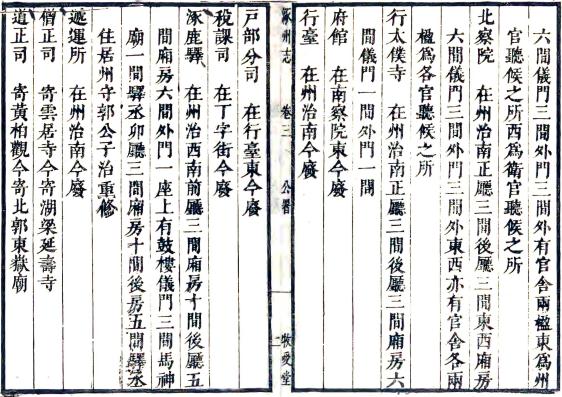 六間儀門三間外門三間外有官舍兩楹東爲州
官聽候之所西爲衛官聽候之所
北察院　在州治南正廳三間後廳三間東西廂房
六間儀門三間外門三間外東西亦有官舍各兩
楹爲各官聽候之所
行太僕寺　在州治南正廳三間後廳三間廂房六
間儀門一間外門一間
府館　在南察院東今廢
行臺　在州治南今廢
涿州志　卷三　公署　二　牧愛堂
戶部分司　在行臺東今廢
稅課司　在丁字街今廢
涿鹿驛　在州治西南前廳三間廂房十間後廳五
間廂房六間外門一座上有鼓樓儀門三間馬神
廟一間驛丞卯廳三間廂房十間後房五間驛丞
住居州守郭公子治重修
遞運所　在州治南今廢
僧正司　寄雲居寺今寄湖梁延壽寺
道正司　寄黃柏觀今寄北郭東嶽廟